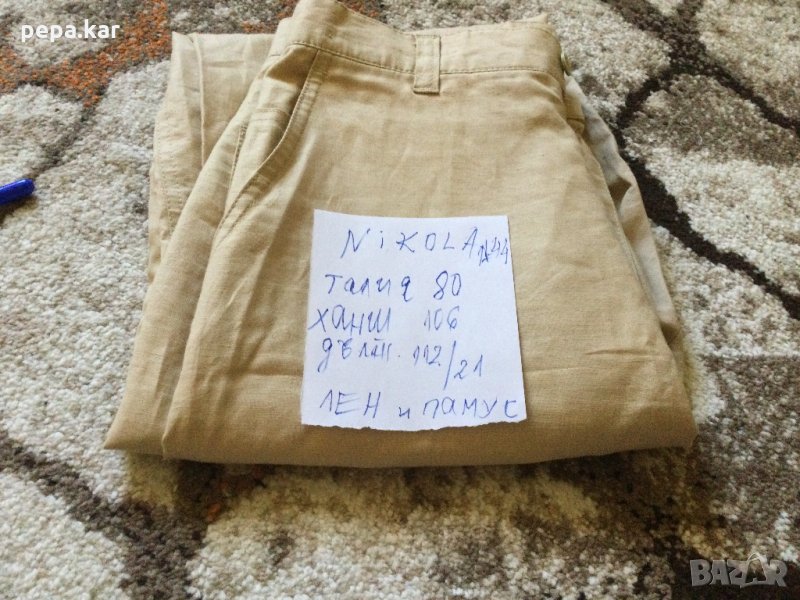 pepa.kar
NiKOLA N44
талия 80
ХАНШ 106
дълж. 112/21
ЛЕН и ПАМУК
BAZAR